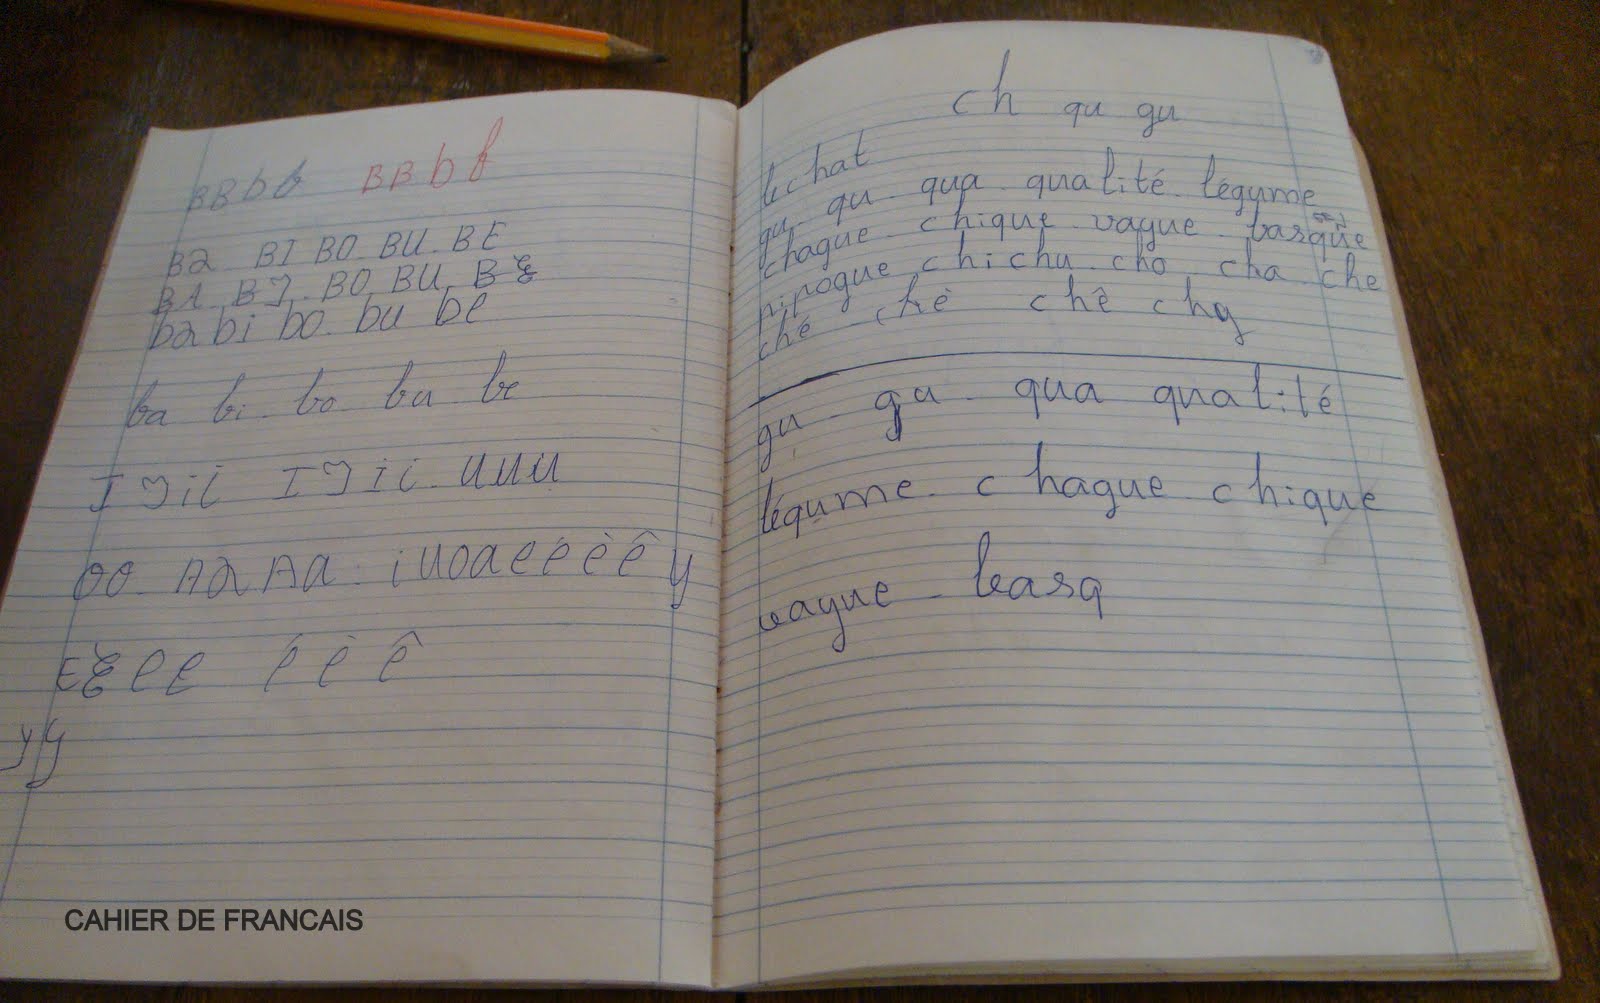 BBbb BBbb
Ba BI BO BU BE
BA BI BO BU BE
ba bi bo bu be
ba bi bo bu be
I I i i I I i i u u u
o o A a A a i u o a e é è ê y
E E e e é è ê
y y
CAHIER DE FRANCAIS
ch qu gu
le chat
gu qu qua qualité légume
chague chique vague basque
pirogue chichu cho cha che
ché chè chê chy
gu qu qua qualité
légume chague chique
vague basq